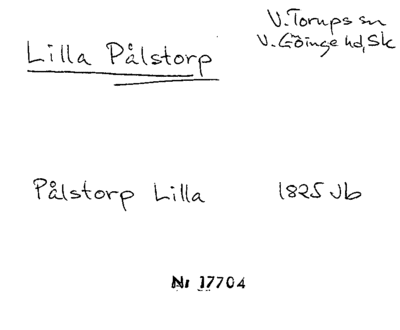 V. Torups sn
Lilla Pålstorp
V. Göinge hd, Sk
Pålstorp Lilla 1825 Jb
Nr 17704